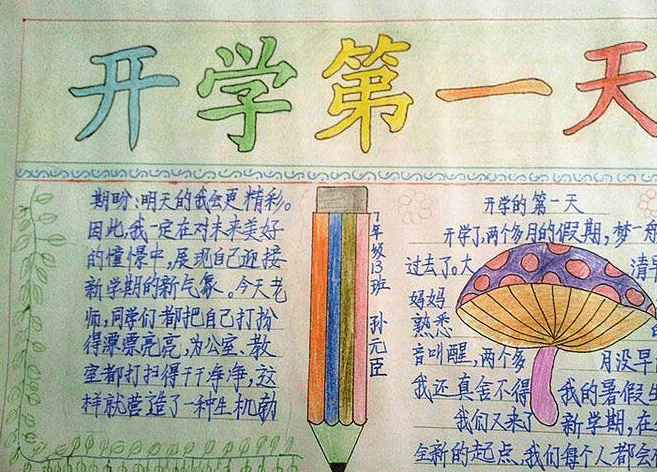 开学第一天
期盼:明天的我会更精彩。
因此,我一定在对未来美好
的憧憬中,展现自己迎接
新学期的新气象。今天老
师,同学们都把自己打扮
得漂漂亮亮,为公室、教
室都打扫得干干净净,这
样就营造了一种生机勃
7年级13班 孙元臣
开学的第一天
开学了,两个多月的假期,梦一般
过去了。大 清早
妈妈
熟悉 的
音叫醒,两个多 月没早
我还真舍不得 我的暑假生
我们又来了 新学期,在
全新的起点、我们每个人都会